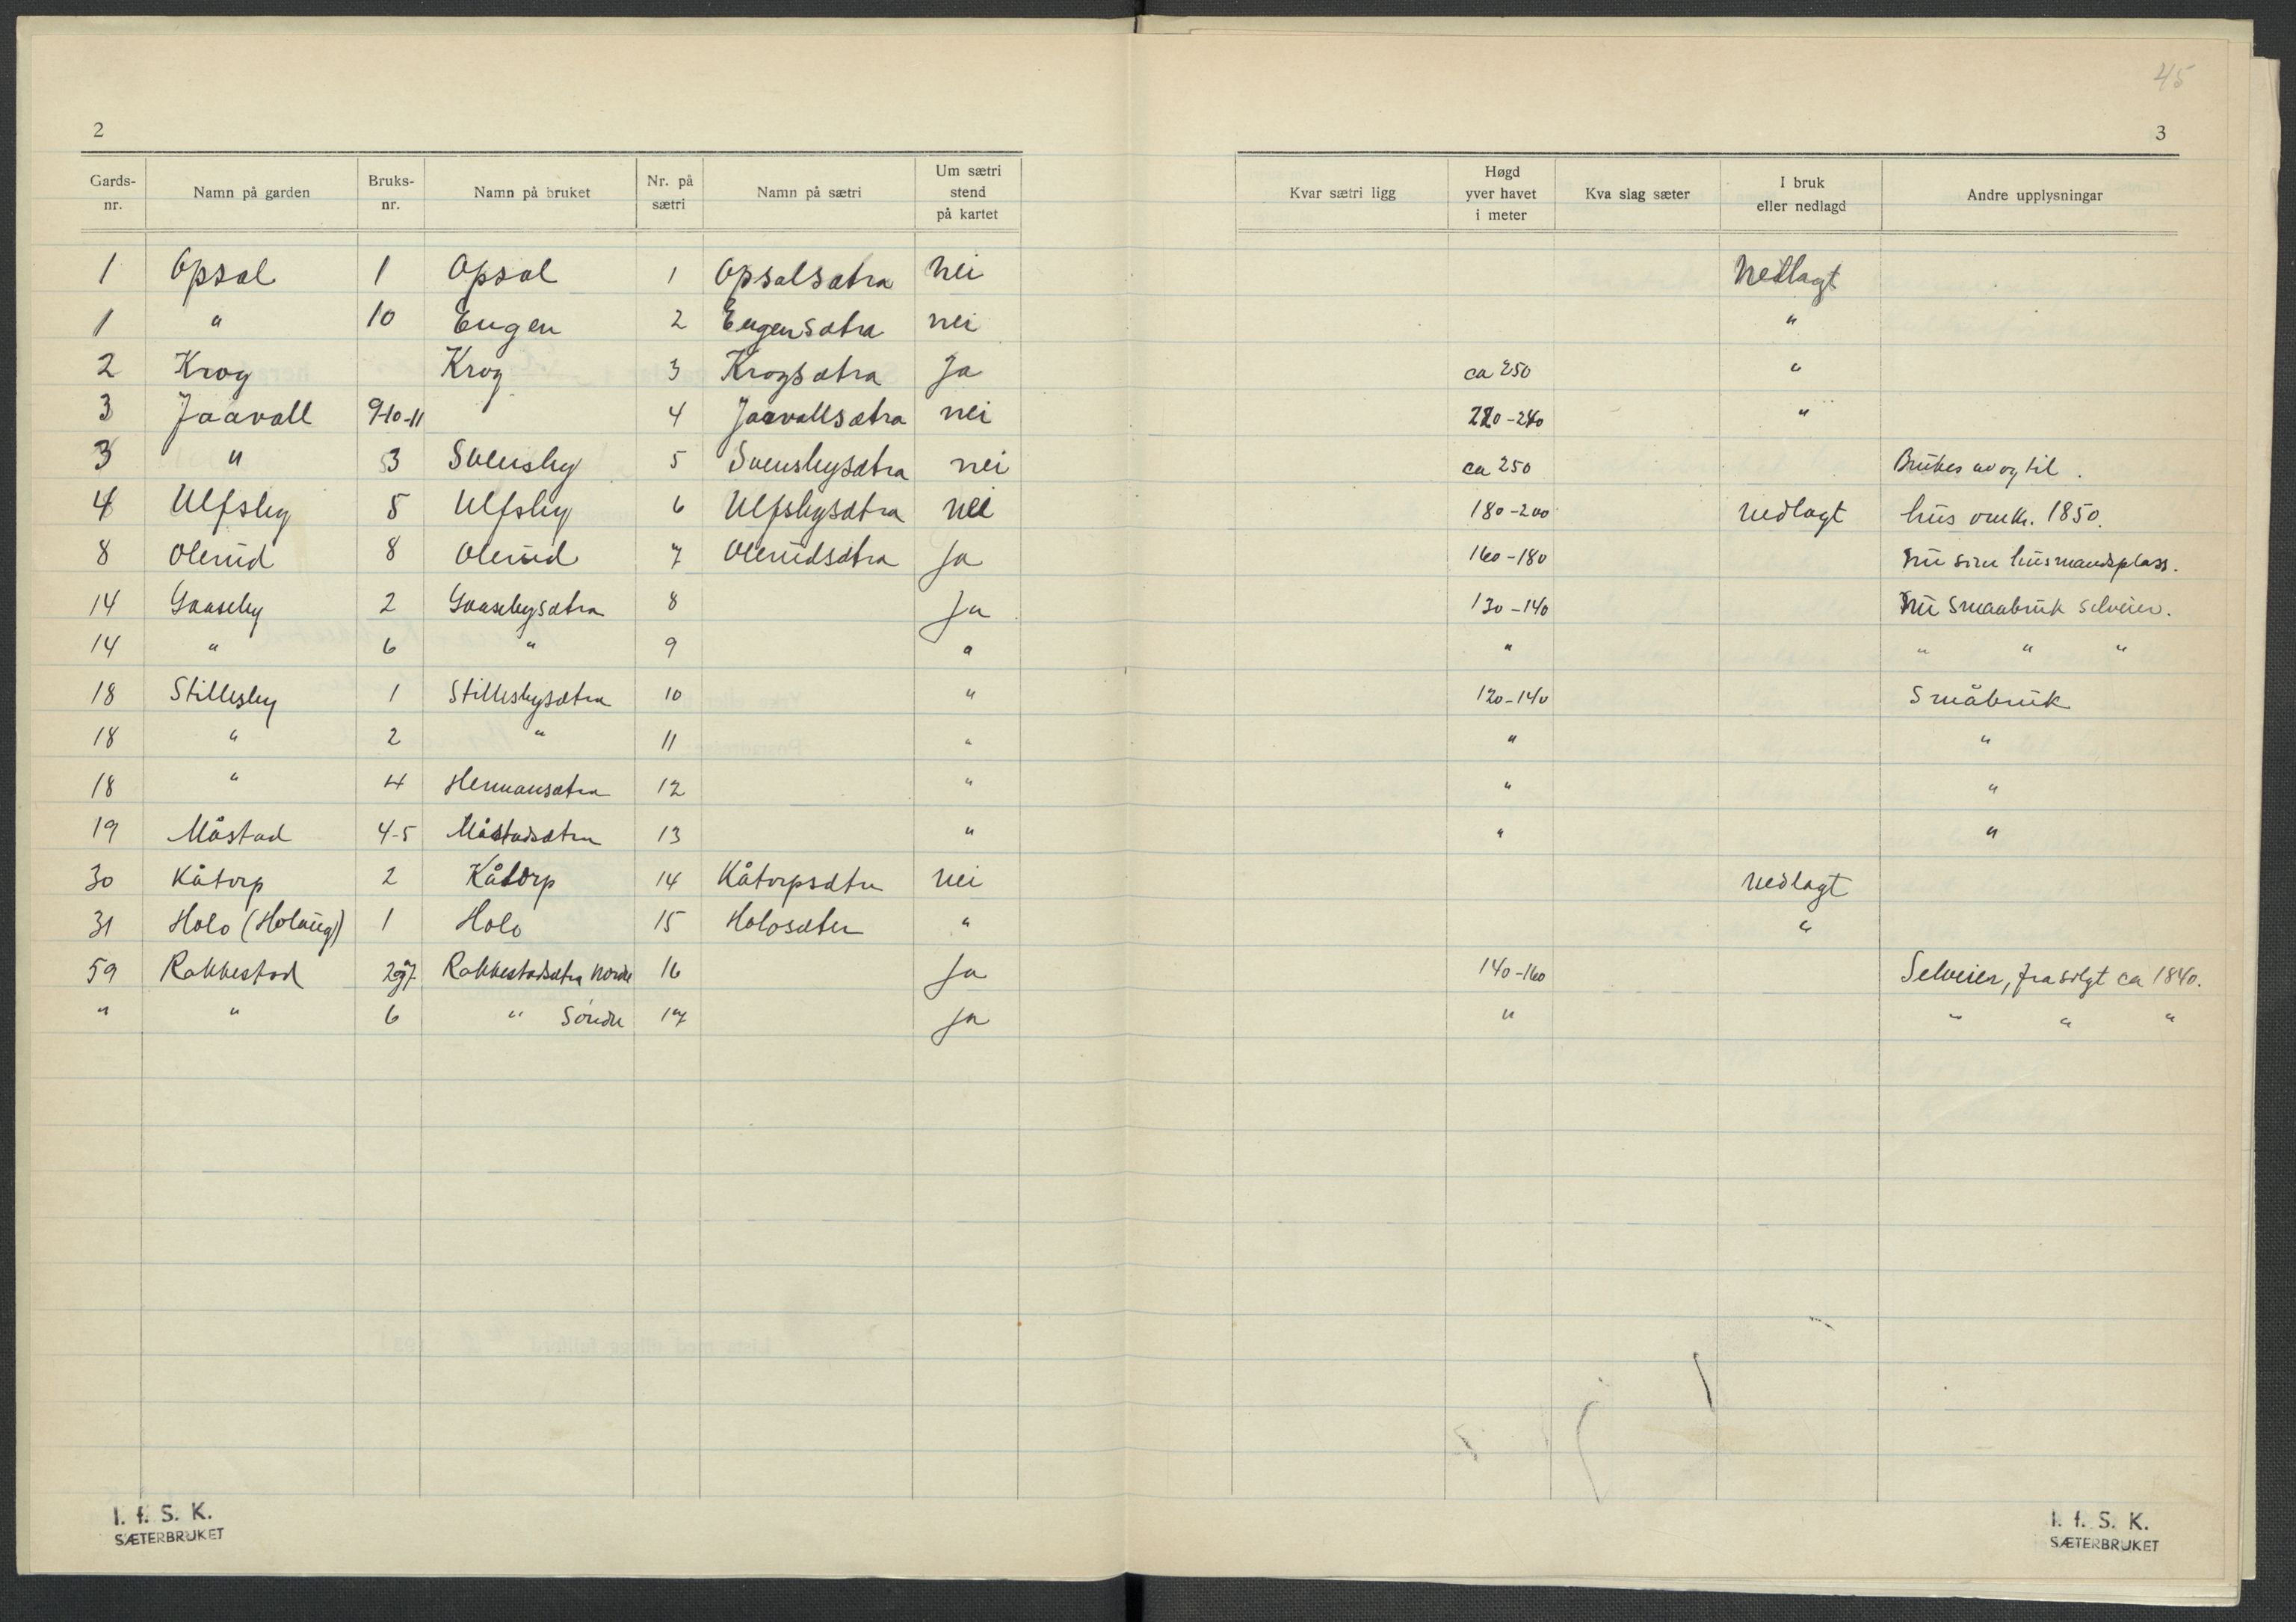 45
2
3
Gards-nr. Namn på garden Bruks-nr. Namn på bruket Nr. på sætri Namn på sætri Um sætri stend på kartet Kvar sætri ligg Høgd yver havet i meter Kva slag sæter I bruk eller nedlagd Andre upplysningar
1 Opsal 1 Opsal 1 Opsalsætra Nei Nedlagt
1 " 10 Engen 2 Engensætra nei "
2 Krog Krog 3 Krogsætra Ja ca 250 "
3 Jaavall 9-10-11 4 Jaavallsætra nei 220-240 "
3 " 3 Svensby 5 Svensbysætra nei ca 250 Brukes av og til.
4 Ulfsby 5 Ulfsby 6 Ulfsbysætra nei 180-200 nedlagt hus omkr. 1850.
8 Olerud 8 Olerud 7 Olerudsætra Ja 160-180 Nu som husmandsplass.
14 Gaaseby 2 Gaasebysætra 8 Ja 130-140 Nu Smaabruk selveier.
14 " 6 " 9 " " " " "
18 Stillesby 1 Stillesbysætra 10 " 120-140 Småbruk
18 " 2 " 11 " " "
18 " 4 Hermansætra 12 " " "
19 Måstad 4-5 Måstadsætra 13 " " "
30 Kåtorp 2 Kåtorp 14 Kåtorpsætra nei nedlagt
31 Holo (Holaug) 1 Holo 15 Holosæter " "
59 Rakkestad 2 og 7. Rakkestadsætra nordre 16 Ja 140-160 Selveier, frasolgt ca 1840.
" " 6 " Søndre 17 Ja " " " "
I. f. S. K.
SÆTERBRUKET
I. f. S. K.
SÆTERBRUKET